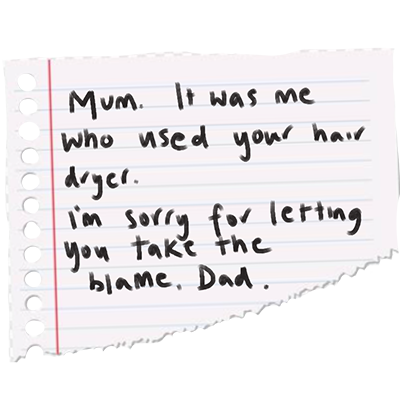 Mum. It was me
who used your hair
dryer.
i'm sorry for letting
you take the
blame. Dad.